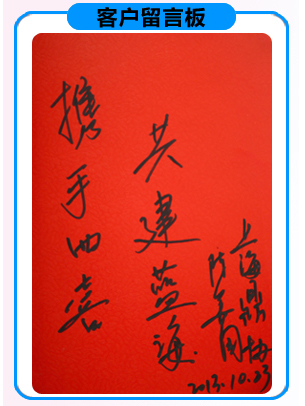 客户留言板
携手四喜
共建蓝海
上海鼎
2013.10.23